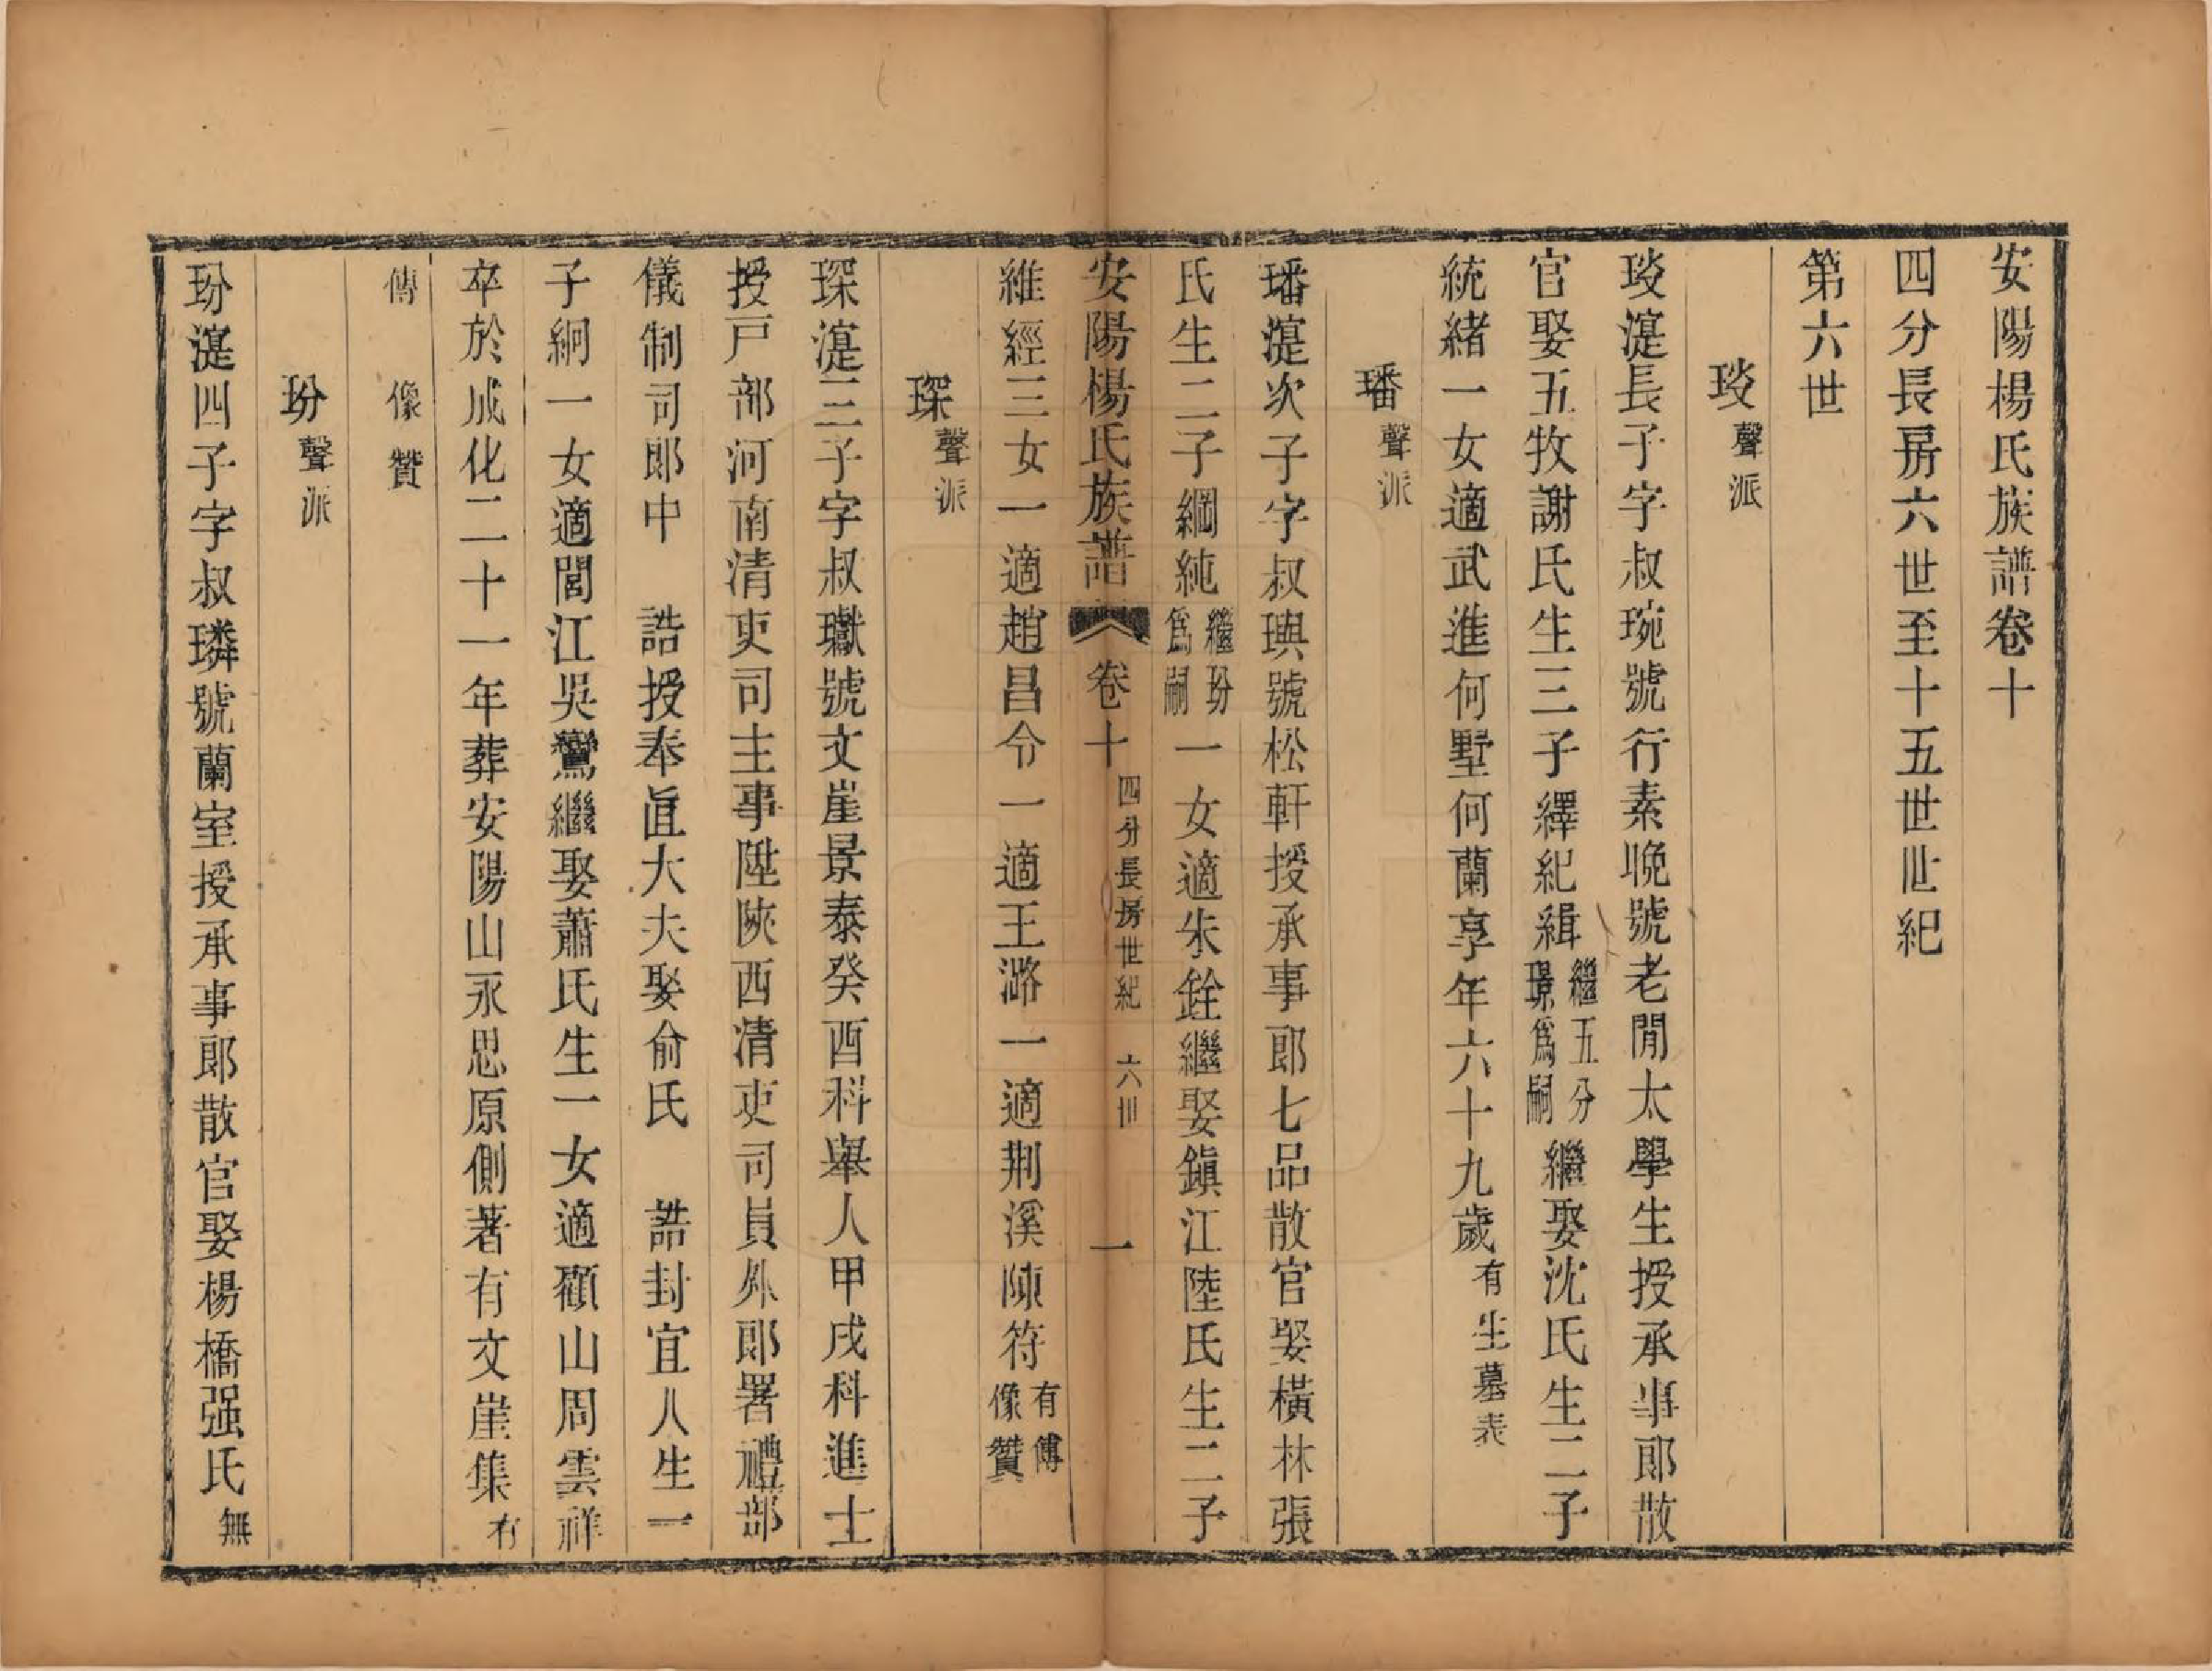 安陽楊氏族譜卷十
四分長房六世至十五世世紀
第六世
琰聲派
琰湜長子字叔琬號行素晚號老閒太學生授承事郎散
官娶五牧謝氏生三子繹紀緝繼五分璟爲嗣繼娶沈氏生二子
統緒一女適武進何墅何蘭享年六十九歲有生墓表
璠聲派
璠湜次子字叔璵號松軒授承事郎七品散官娶橫林張
氏生二子綱純繼玢爲嗣一女適朱銓繼娶鎮江陸氏生二子
安陽楊氏族譜 卷十 四分長房世紀 六世 一
維經三女一適趙昌令一適王潞一適荆溪陳符有傳像贊
琛聲派
琛湜三子字叔瓛號文崖景泰癸酉科舉人甲戌科進士
授戸部河南清吏司主事陞陝西清吏司員外郎署禮部
儀制司郎中 誥授奉直大夫娶俞氏 誥封宜人生一
子絅一女適閭江吳鸞繼娶蕭氏生一女適顧山周雲祥
卒於成化二十一年葬安陽山永思原側著有文崖集有
傳 像贊
玢聲派
玢湜四子字叔璘號蘭室授承事郎散官娶楊橋强氏無